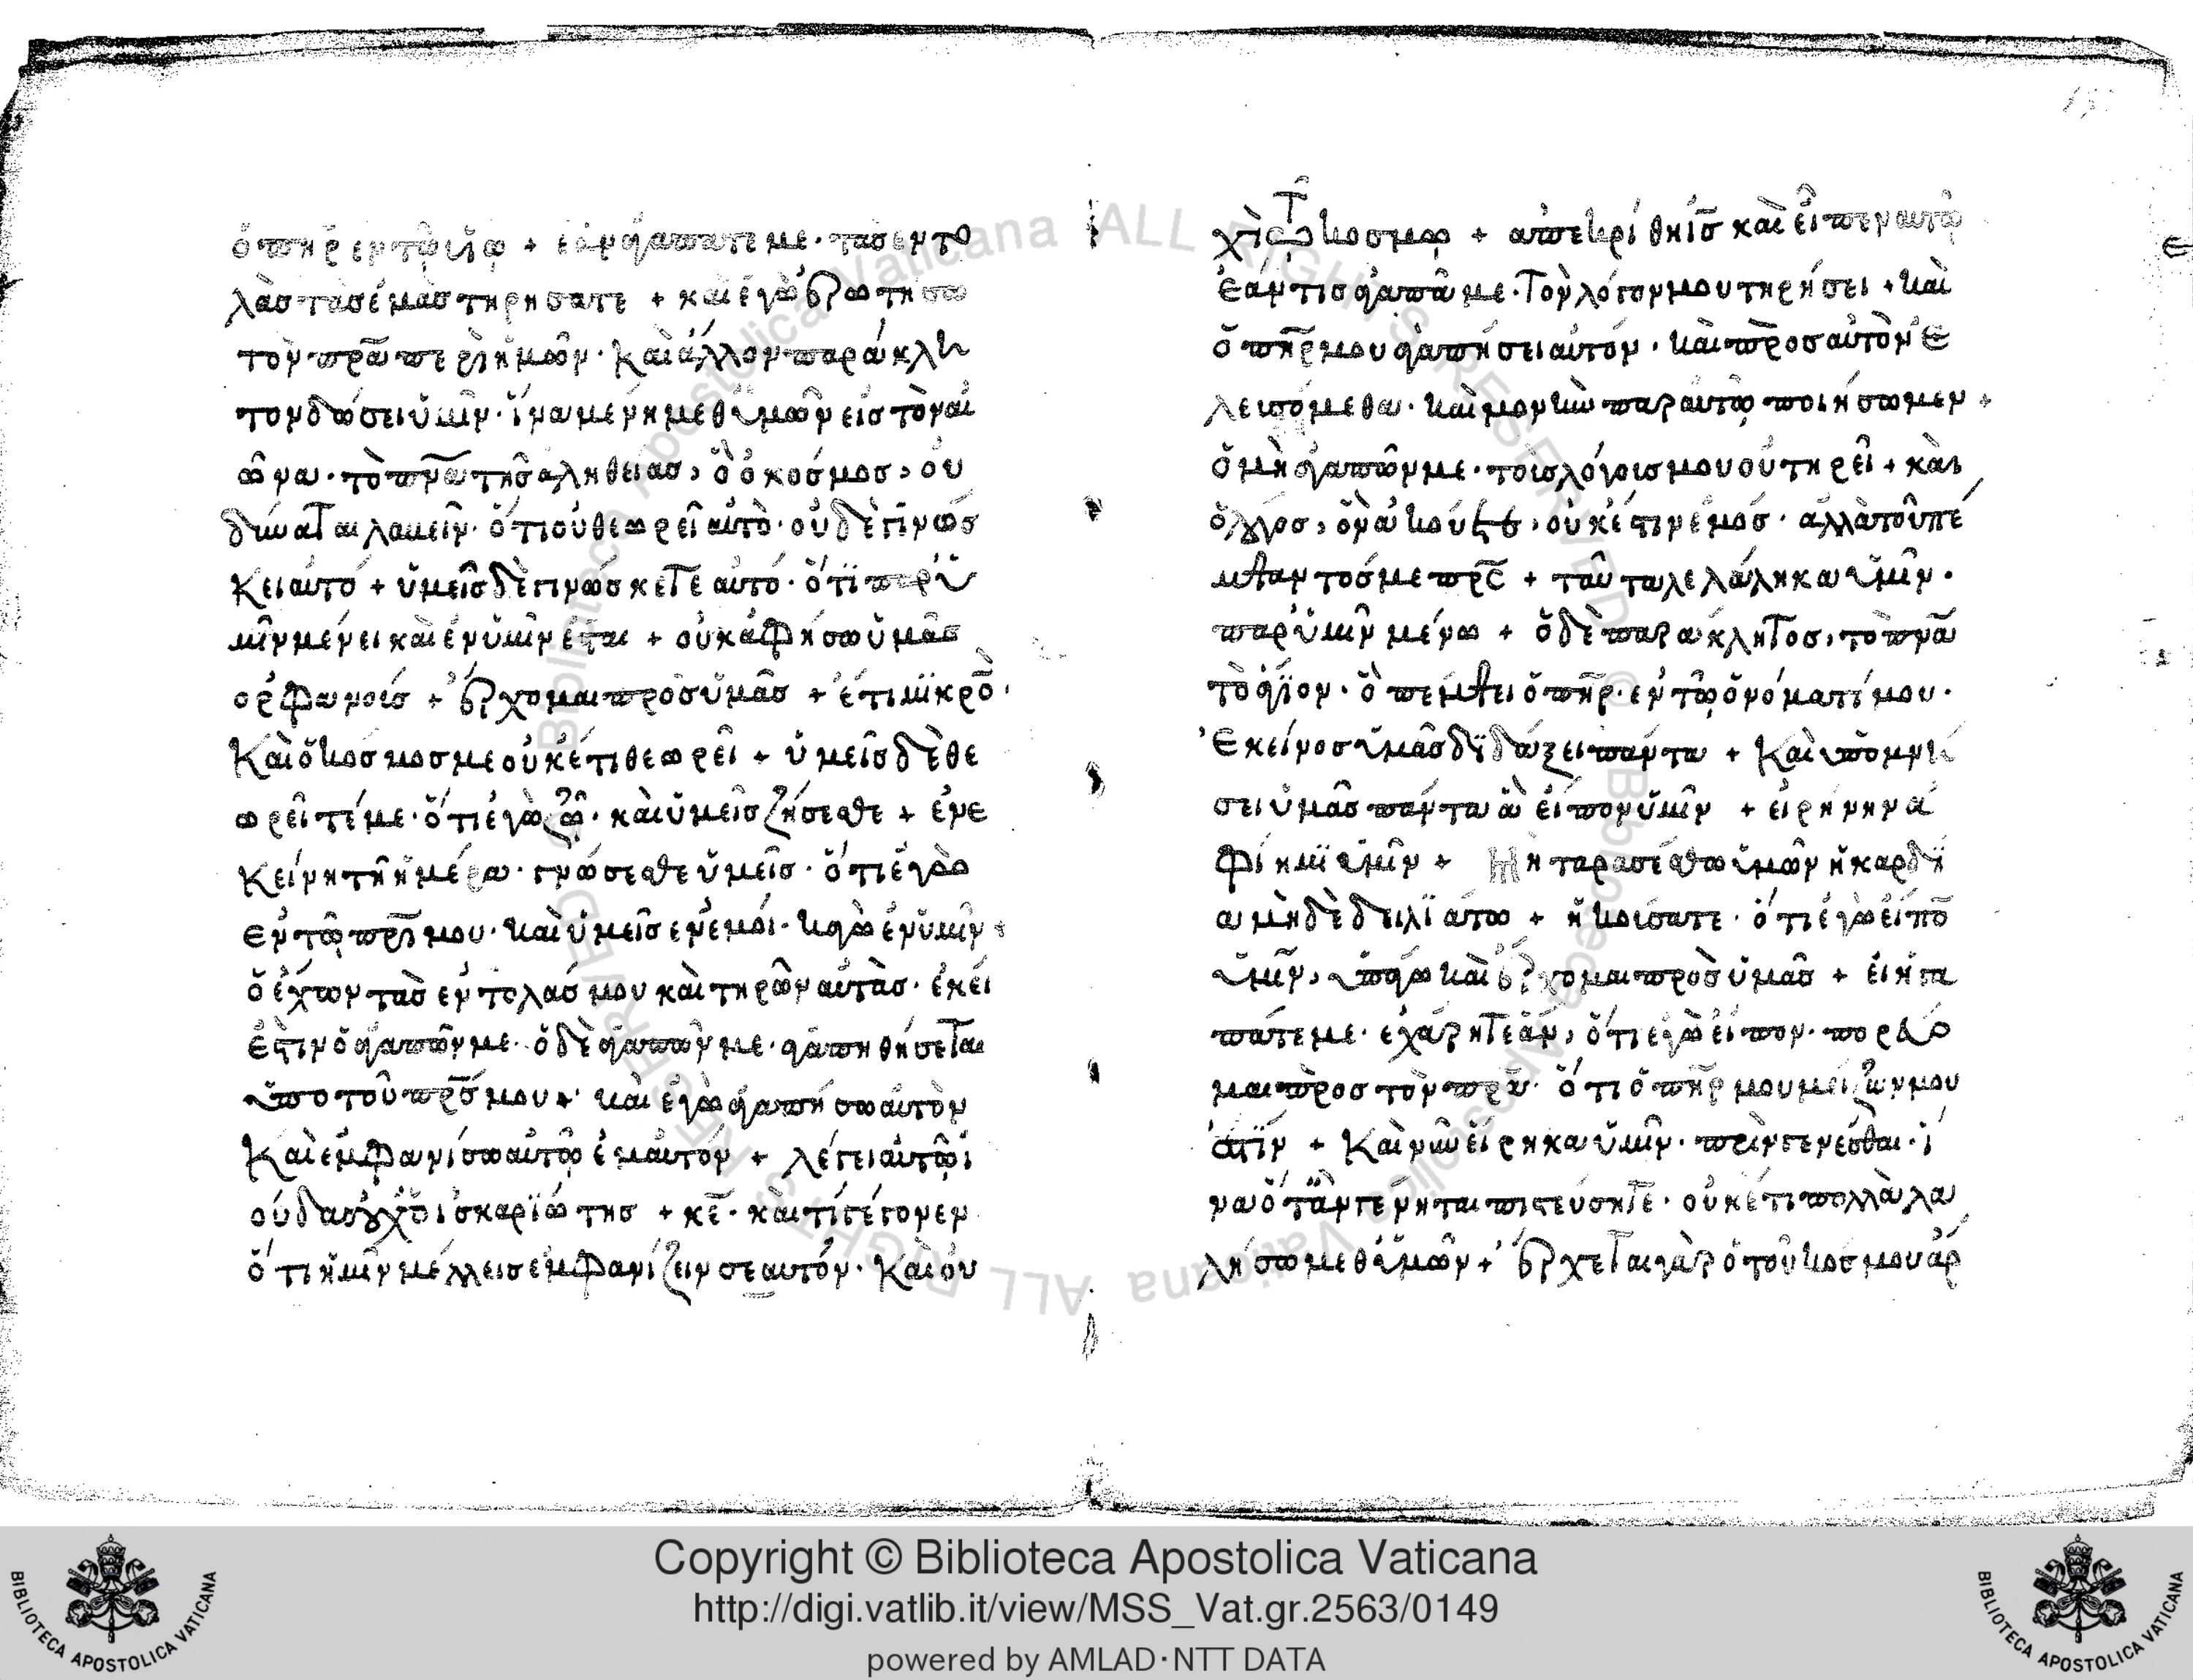 ὁ πηρ εν τῶ υιῶ + εὰν ἀγαπατε με · τὰσ εντο
λὰσ τὰσ ἐμὰσ τηρησατε + καὶ ἐγὼ ἐρωτησω
τὸν πρᾱ περὶ ἡμῶν · καὶ ἄλλον παράκλη
τον δώσει ὑμῖν · ἵνα μένη μεθ ὑμῶν εἰσ τὸν αἰ
ῶνα · τὸ πνᾱ τῆσ αληθειασ, ὃ ὁ κοσμοσ, οὐ
δύναται λαμειν · ὅτι οὐ θεωρεῖ αὐτὸ · οὐδὲ γινώσ
κει αὐτό + ὑμεῖσ δὲ γινώσκετε αὐτό · ὅτι παρ ὑ
μῖν μένει καὶ ἐν ὑμῖν ἔσται + οὐκ ἀφήσω ὑμᾶσ
ορφανοίσ + ἔρχομαι προσ ὑμᾶσ + ἔτι μικρὸ ·
Καὶ ὁ κόσμοσ με οὐκέτι θεωρεῖ + ὑμεῖσ δὲ θε
ωρεῖτέ με · ὅτι ἐγὼ ζῶ · καὶ ὑμεῖσ ζήσεσθε + ἐν ε
κείνη τῆ ἡμέρα · γνώσεσθε ὑμεῖσ · ὅτι ἐγὼ
εν τῶ πρι μου · καὶ ὑμεῖσ εν ἐμοί · κἀγὼ ἐν ὑμῖν +
ὁ ἔχων τὰσ εντολάσ μου καὶ τηρῶν αὐτὰσ · ἐκεῖ
ἐστιν ὁ ἀγαπῶν με · ὁ δὲ ἀγαπῶν με · ἀγαπηθήσεται
ὑπο τοῦ πρσ μου + καὶ ἐγὼ ἀγαπήσω αὐτὸν
Καὶ ἐμφανίσω αὐτῶ ἐμαυτόν + λέγει αὐτῶ ἰ
ούδασ οὐχ ὁ ἰσκαριώτησ + κε̄ · καὶ τί γέγονεν
ὅτι ἡμῖν μέλλεισ ἐμφανίζειν σεαυτόν · Καὶ οὐ
χὶ τῶ κοσμω + απεκρίθη ισ̄ καὶ εἶπεν αυτῶ
ἐάν τισ ἀγαπᾶ με · τὸν λόγον μου τηρήσει + καὶ
ὁ πηρ μου ἀγαπήσει αὐτόν · καὶ πρὸσ αὐτὸν ε
λευσόμεθα · καὶ μονὴν παρ αὐτῶ ποιήσωμεν +
ὁ μὴ ἀγαπῶν με · τοισ λόγοισ μου οὐ τηρεῖ + καὶ
ὁ λόγοσ, ὃν ἀκούετε, οὐκ ἔστιν ἐμόσ · ἀλλὰ τοῦ πέ
μψαντόσ με πρσ + ταῦτα λελάληκα ὑμῖν ·
παρ ὑμῖν μένω + ὁ δὲ παράκλητοσ, τὸ πνᾱ
τὸ ἅγιον · ὃ πέμψει ὁ πηρ · εν τῶ ὀνόματί μου ·
Ἐκείνοσ ὑμᾶσ διδάξει πάντα + Καὶ ὑπομνή
σει ὑμᾶσ πάντα ἃ εἶπον ὑμῖν + εἰρήνην ἀ
φίημι ὑμῖν + Μη ταρασέσθω ὑμῶν ἡ καρδί
α μὴ δὲ δειλιάτω + ἠκούσατε · ὅτι ἐγὼ εἶπο̄
ὑμῖν, ὑπάγω καὶ ἔρχομαι προσ ὑμᾶσ + εἰ ἠγα
πάτε με · ἐχάρητε ἄν, ὅτι ἐγὼ εἶπον · πορεύο
μαι πρὸσ τὸν πρᾱ · ὅτι ὁ πηρ μου μείζων μου
ἐστίν + Καὶ νῦν εἴρηκα ὑμῖν · πρὶν γενέσθαι · ἵ
να ὅταν γένηται πιστεύσητε · οὐκέτι πολλὰ λα
λήσω μεθ ὑμῶν + ἔρχεται γὰρ ὁ τοῦ κόσμου ἄρ
Copyright © Biblioteca Apostolica Vaticana
http://digi.vatlib.it/view/MSS_Vat.gr.2563/0149
powered by AMLAD·NTT DATA
BIBLIOTECA APOSTOLICA VATICANA
BIBLIOTECA APOSTOLICA VATICANA